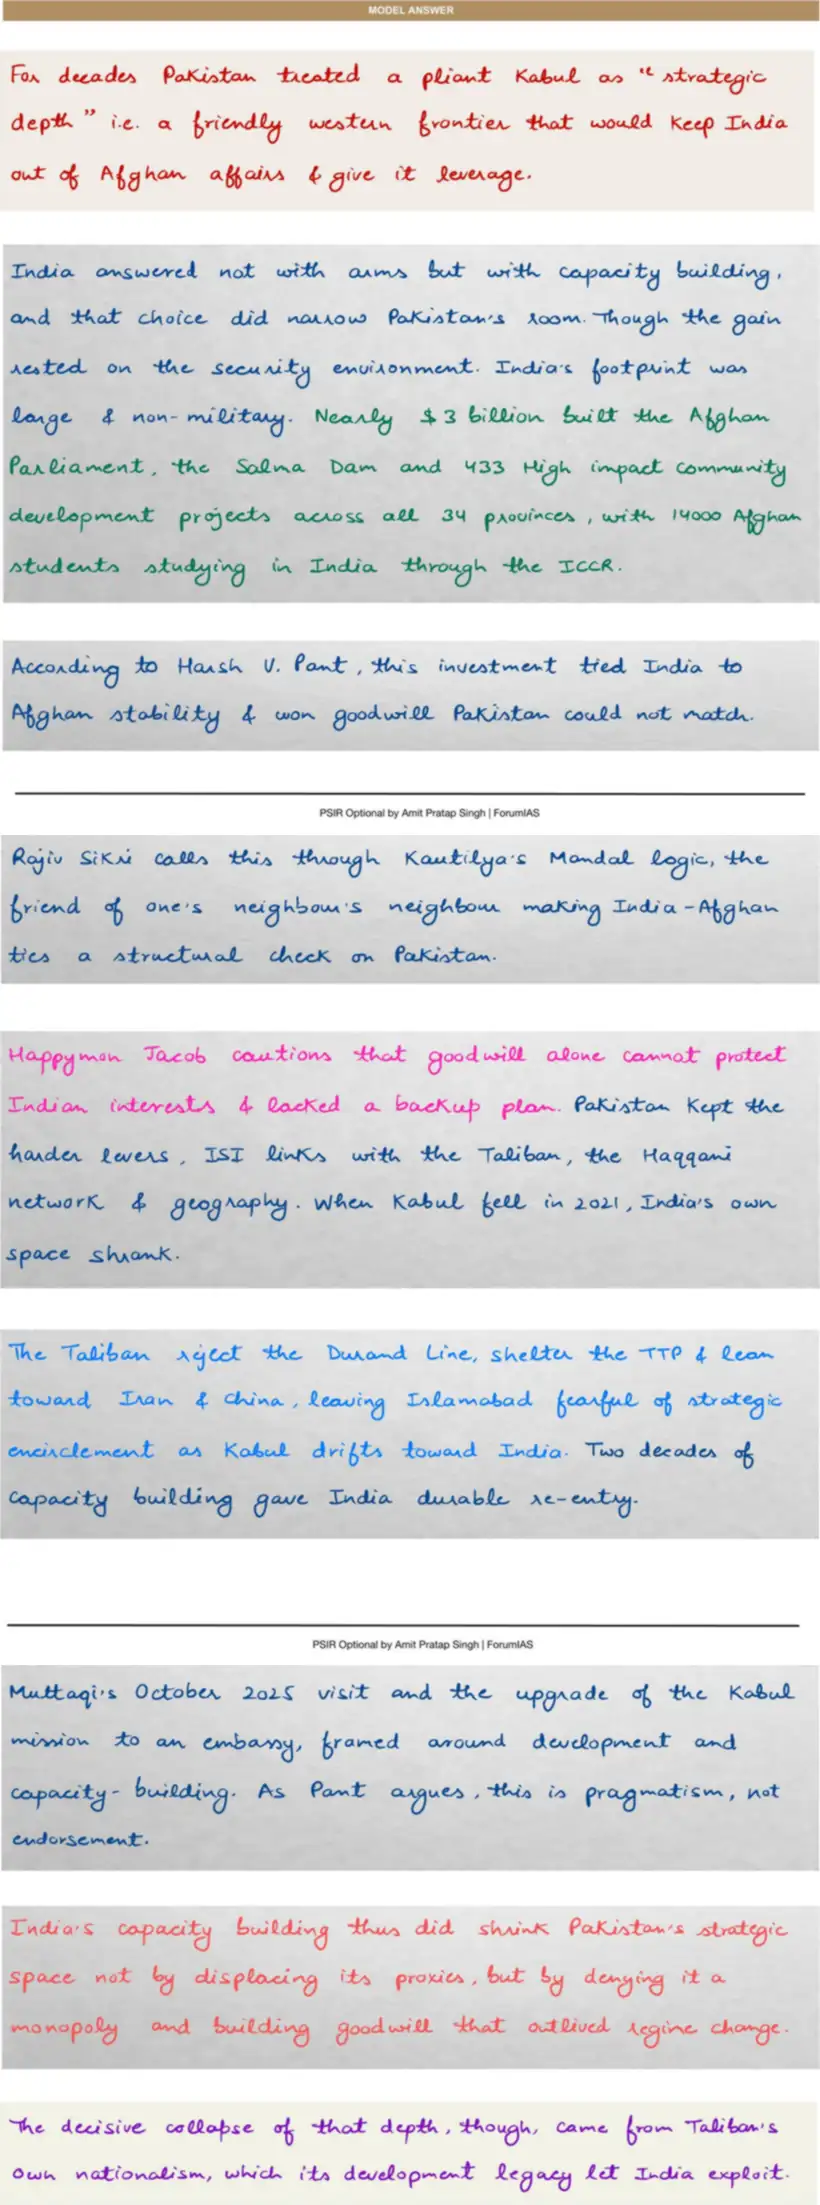 MODEL ANSWER
For decades Pakistan treated a pliant Kabul as "strategic
depth" i.e. a friendly western frontier that would keep India
out of Afghan affairs & give it leverage.
India answered not with arms but with capacity building,
and that choice did narrow Pakistan's room. Though the gain
rested on the security environment. India's footprint was
large & non-military. Nearly $3 billion built the Afghan
Parliament, the Salma Dam and 433 High impact community
development projects across all 34 provinces, with 14000 Afghan
students studying in India through the ICCR.
According to Harsh V. Pant, this investment tied India to
Afghan stability & won goodwill Pakistan could not match.
PSIR Optional by Amit Pratap Singh | ForumIAS
Rajiv Sikri calls this through Kautilya's Mandal logic, the
friend of one's neighbour's neighbour making India-Afghan
ties a structural check on Pakistan.
Happymon Jacob cautions that goodwill alone cannot protect
Indian interests & lacked a backup plan. Pakistan kept the
harder levers, ISI links with the Taliban, the Haqqani
network & geography. When Kabul fell in 2021, India's own
space shrank.
The Taliban reject the Durand Line, shelter the TTP & lean
toward Iran & China, leaving Islamabad fearful of strategic
encirclement as Kabul drifts toward India. Two decades of
capacity building gave India durable re-entry.
PSIR Optional by Amit Pratap Singh | ForumIAS
Muttaqi's October 2025 visit and the upgrade of the Kabul
mission to an embassy, framed around development and
capacity-building. As Pant argues, this is pragmatism, not
endorsement.
India's capacity building thus did shrink Pakistan's strategic
space not by displacing its proxies, but by denying it a
monopoly and building goodwill that outlived regime change.
The decisive collapse of that depth, though, came from Taliban's
own nationalism, which its development legacy let India exploit.